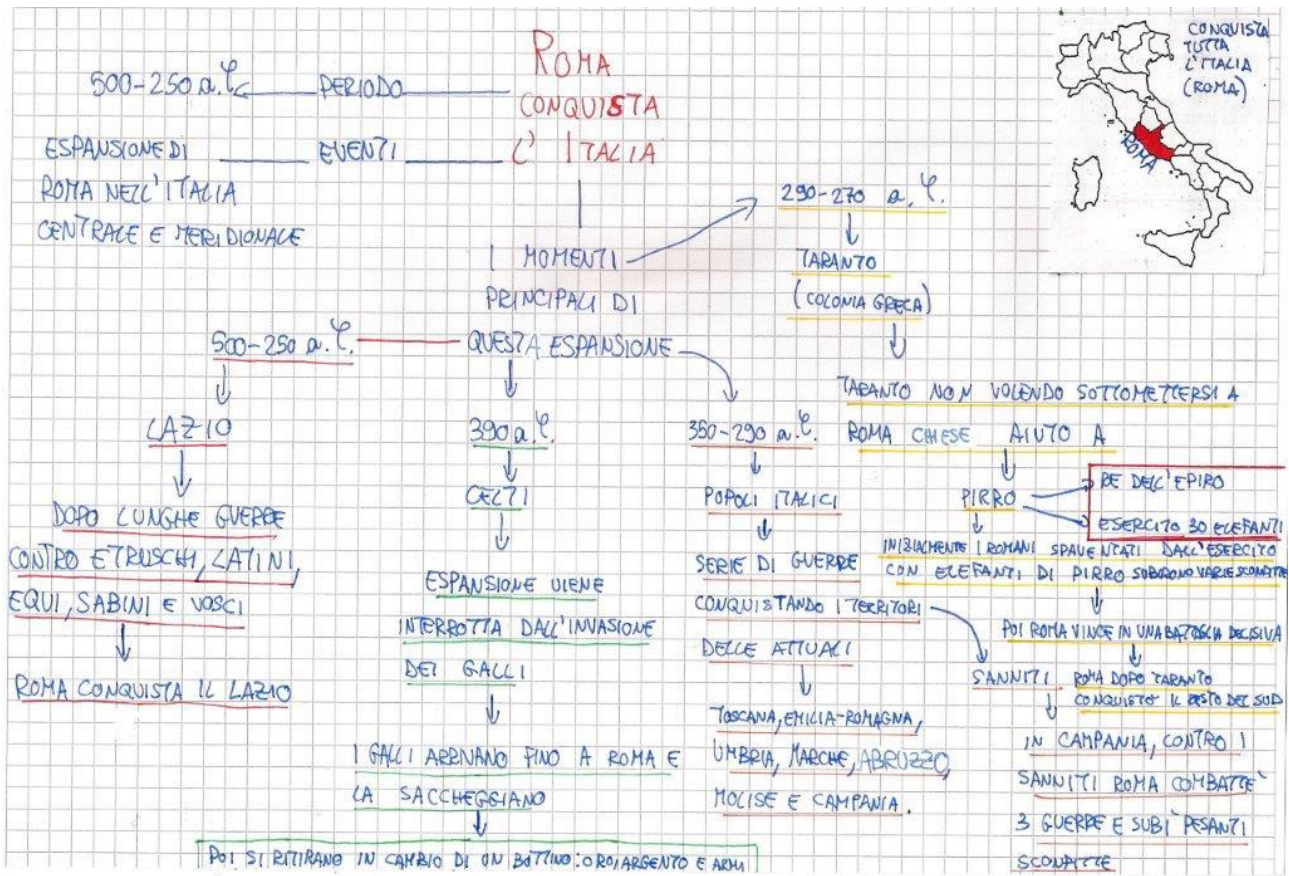 ROMA
CONQUISTA
L'ITALIA
500-250 a.C. PERIODO
ESPANSIONE DI EVENTI
ROMA NELL'ITALIA
CENTRALE E MERIDIONALE
CONQUISTA
TUTTA
L'ITALIA
(ROMA)
ROMA
I MOMENTI
PRINCIPALI DI
QUESTA ESPANSIONE
500-250 a.C.
LAZIO
DOPO LUNGHE GUERRE
CONTRO ETRUSCHI, LATINI,
EQUI, SABINI E VOSCI
ROMA CONQUISTA IL LAZIO
390 a.C.
CELTI
ESPANSIONE VIENE
INTERROTTA DALL'INVASIONE
DEI GALLI
I GALLI ARRIVANO FINO A ROMA E
LA SACCHEGGIANO
POI SI RITIRANO IN CAMBIO DI UN BOTTINO: ORO, ARGENTO E ARMI
350-290 a.C.
POPOLI ITALICI
SERIE DI GUERRE
CONQUISTANDO I TERRITORI
DELLE ATTUALI
TOSCANA, EMILIA-ROMAGNA,
UMBRIA, MARCHE, ABRUZZO,
MOLISE E CAMPANIA.
SANNITI
IN CAMPANIA, CONTRO I
SANNITI ROMA COMBATTÈ
3 GUERRE E SUBÌ PESANTI
SCONFITTE
290-270 a.C.
TARANTO
(COLONIA GRECA)
TARANTO NON VOLENDO SOTTOMETTERSI A
ROMA CHIESE AIUTO A
PIRRO
RE DELL'EPIRO
ESERCITO 30 ELEFANTI
INIZIALMENTE I ROMANI SPAVENTATI DALL'ESERCITO
CON ELEFANTI DI PIRRO SUBIRONO VARIE SCONFITTE
POI ROMA VINCE IN UNA BATTAGLIA DECISIVA
ROMA DOPO TARANTO
CONQUISTÒ IL RESTO DEL SUD